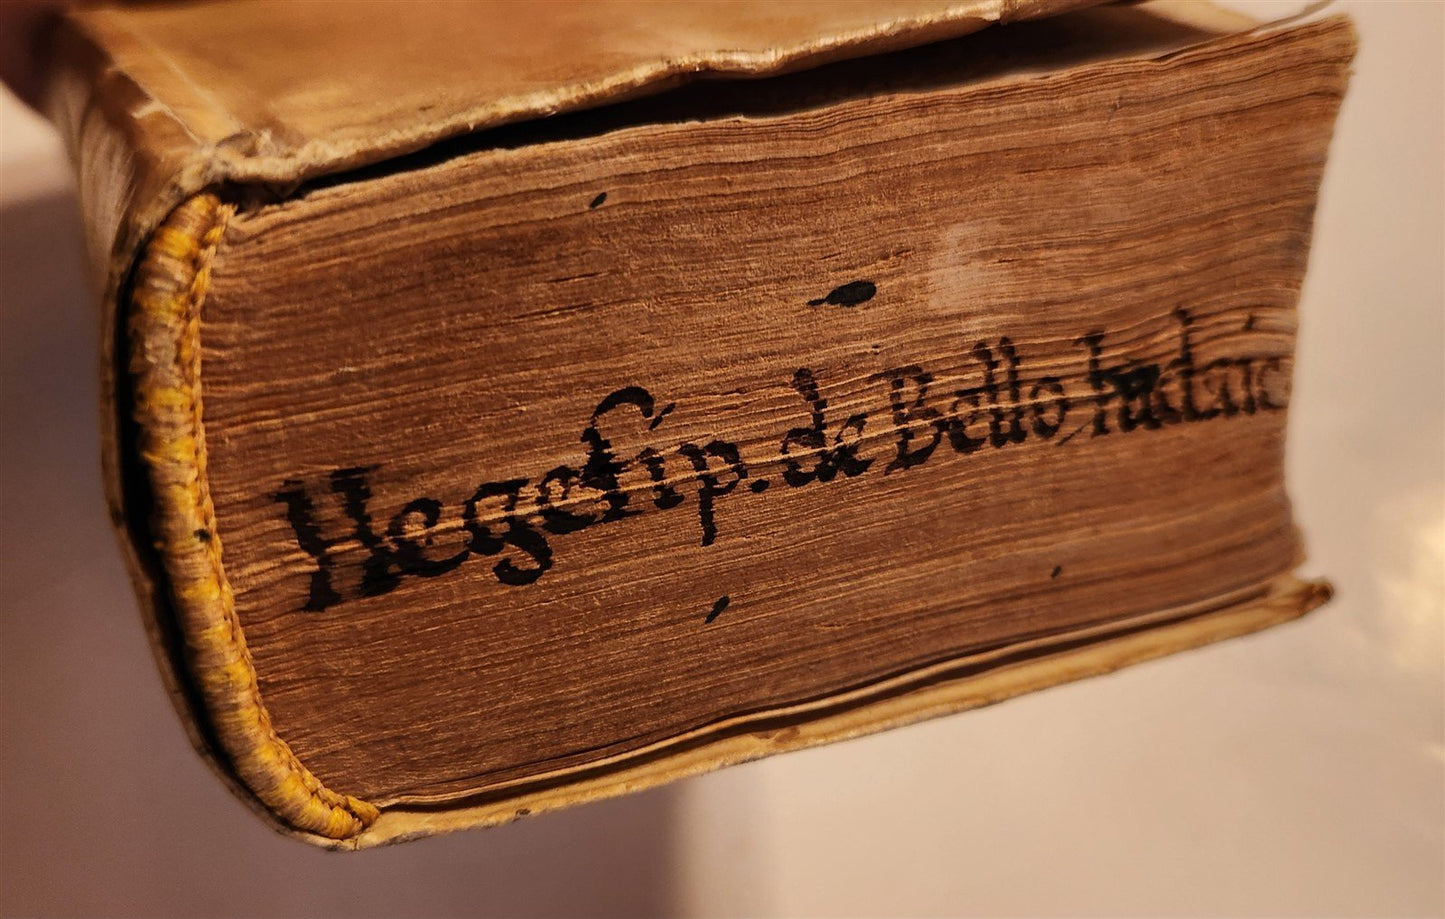 Hegesip. de Bello Iudaic